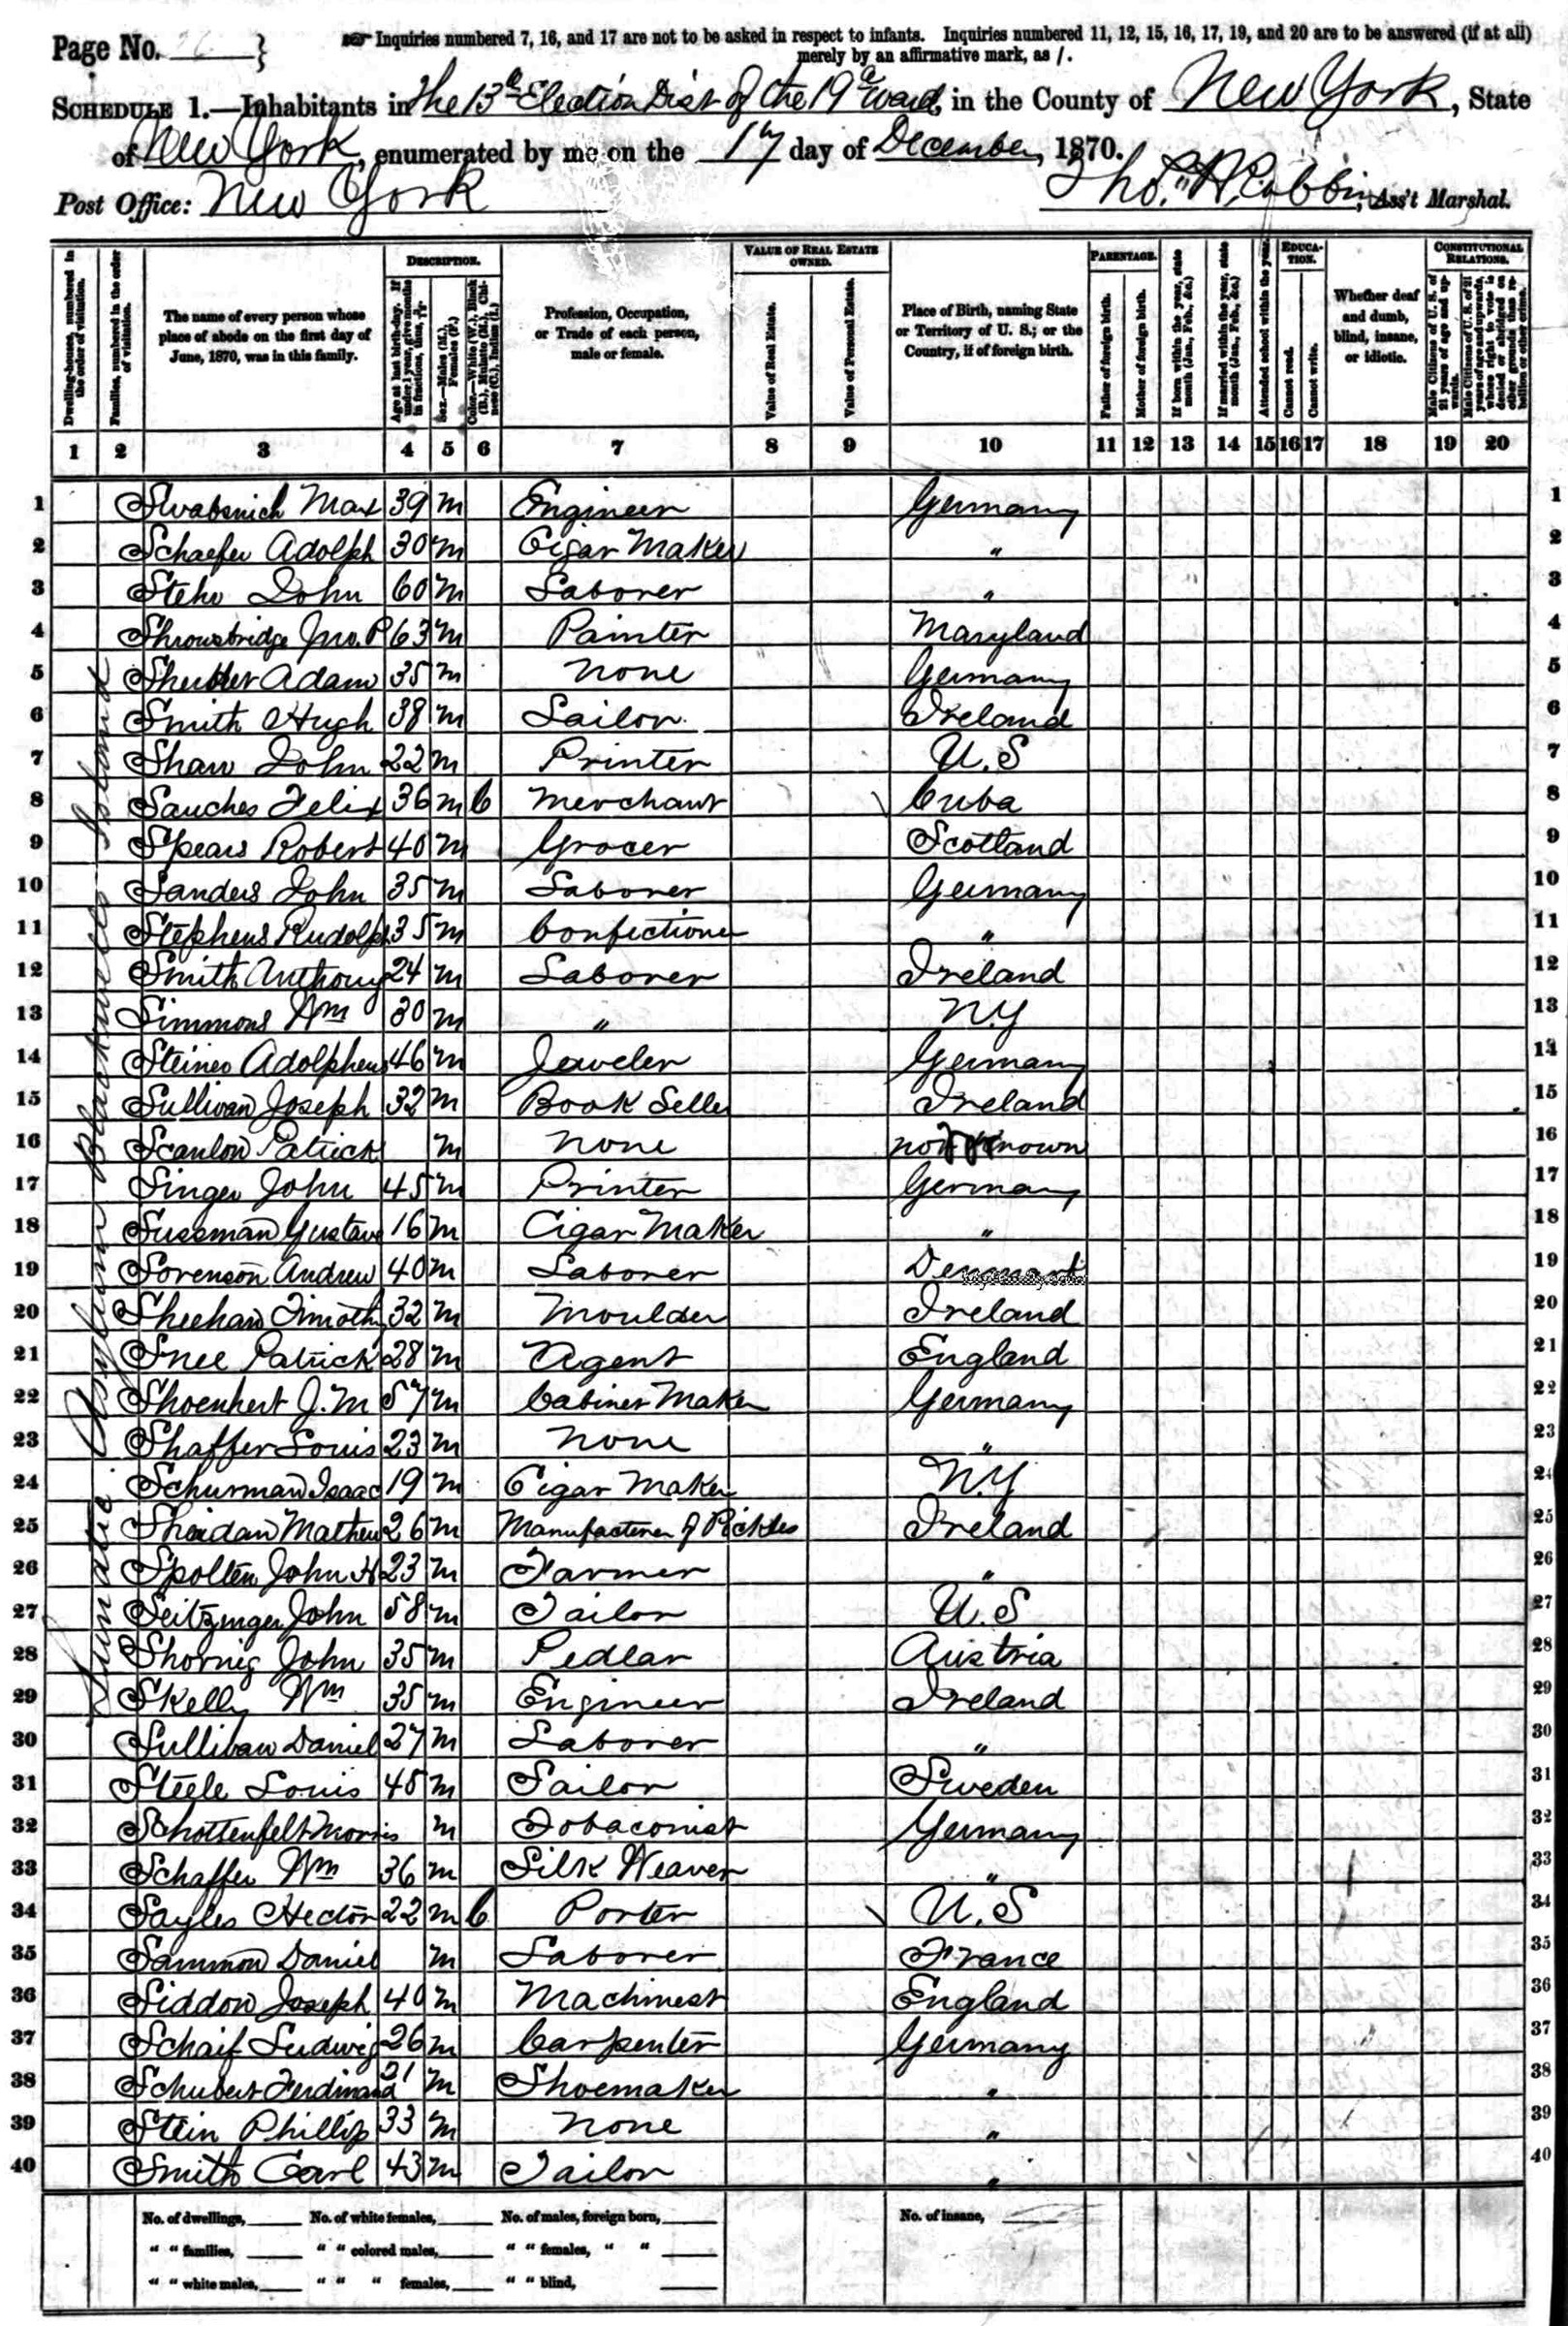 Page No. 26 }
Inquiries numbered 7, 16, and 17 are not to be asked in respect to infants. Inquiries numbered 11, 12, 15, 16, 17, 19, and 20 are to be answered (if at all)
merely by an affirmative mark, as /.
SCHEDULE 1.—Inhabitants in The 13th Election Dist of the 19th Ward, in the County of New York, State
of New York, enumerated by me on the 17 day of December, 1870.
Post Office: New York Tho. Ass't Marshal.
Dwelling-houses, numbered in the order of visitation.
Families, numbered in the order of visitation.
The name of every person whose place of abode on the first day of June, 1870, was in this family.
DESCRIPTION.
Age at last birth-day. If under 1 year, give months in fractions, thus,
Sex.—Males (M.), Females (F.)
Color.—White (W.), Black (B.), Mulatto (M.), Chinese (C.), Indian (I.)
Profession, Occupation, or Trade of each person, male or female.
VALUE OF REAL ESTATE OWNED.
Value of Real Estate.
Value of Personal Estate.
Place of Birth, naming State or Territory of U. S.; or the Country, if of foreign birth.
PARENTAGE.
Father of foreign birth.
Mother of foreign birth.
If born within the year, state month (Jan., Feb., &c.)
If married within the year, state month (Jan., Feb., &c.)
Attended school within the year.
EDUCATION.
Cannot read.
Cannot write.
Whether deaf and dumb, blind, insane, or idiotic.
CONSTITUTIONAL RELATIONS.
Male Citizens of U. S. of 21 years of age and upwards.
Male Citizens of U. S. of 21 years of age and upwards, whose right to vote is denied or abridged on other grounds than rebellion or other crime.
1 2 3 4 5 6 7 8 9 10 11 12 13 14 15 16 17 18 19 20
Lunatic Asylum Blackwells Island
1 Max 39 m Engineer Germany 1
2 Schaefer Adolph 30 m Cigar Maker " 2
3 John 60 m Laborer " 3
4 Shrowsbridge Jno. P 63 m Painter Maryland 4
5 Adam 35 m None Germany 5
6 Smith Hugh 38 m Sailor Ireland 6
7 Shaw John 22 m Printer U.S 7
8 Sanches Felix 36 m C Merchant Cuba 8
9 Spears Robert 40 m Grocer Scotland 9
10 Sanders John 35 m Laborer Germany 10
11 Stephens Rudolph 35 m Confectioner " 11
12 Smith Anthony 24 m Laborer Ireland 12
13 Simmons Wm 30 m " N.Y 13
14 Steiner Adolpheus 46 m Jeweler Germany 14
15 Sullivan Joseph 32 m Book Seller Ireland 15
16 Scanlon Patrick m None not known 16
17 Singer John 45 m Printer Germany 17
18 Sussman Gustave 16 m Cigar Maker " 18
19 Sorenson Andrew 40 m Laborer Denmark 19
20 Sheehan Timothy 32 m Moulder Ireland 20
21 Snee Patrick 28 m Agent England 21
22 Shoenhert J. M 57 m Cabinet Maker Germany 22
23 Shaffer Louis 23 m None " 23
24 Schurman Isaac 19 m Cigar Maker N.Y 24
25 Sheridan Mathew 26 m Manufacturer of Pickles Ireland 25
26 Spolten John H 23 m Farmer " 26
27 Seitzinger John 58 m Tailor U.S 27
28 Shornig John 35 m Pedlar Austria 28
29 Skelly Wm 35 m Engineer Ireland 29
30 Sullivan Daniel 27 m Laborer " 30
31 Steele Louis 48 m Sailor Sweden 31
32 Schottenfelt Morris m Tobaconist Germany 32
33 Schaffer Wm 36 m Silk Weaver " 33
34 Sayles Hector 22 m C Porter U.S 34
35 Sammon Daniel m Laborer France 35
36 Siddon Joseph 40 m Machinest England 36
37 Schaif Ludwig 26 m Carpenter Germany 37
38 Schubert Ferdinand 21 m Shoemaker " 38
39 Stein Phillip 33 m None " 39
40 Smith Carl 43 m Tailor " 40
No. of dwellings, No. of white females, No. of males, foreign born, No. of insane,
" " families, " " colored males, " " females, " "
" " white males, " " " females, " " blind,